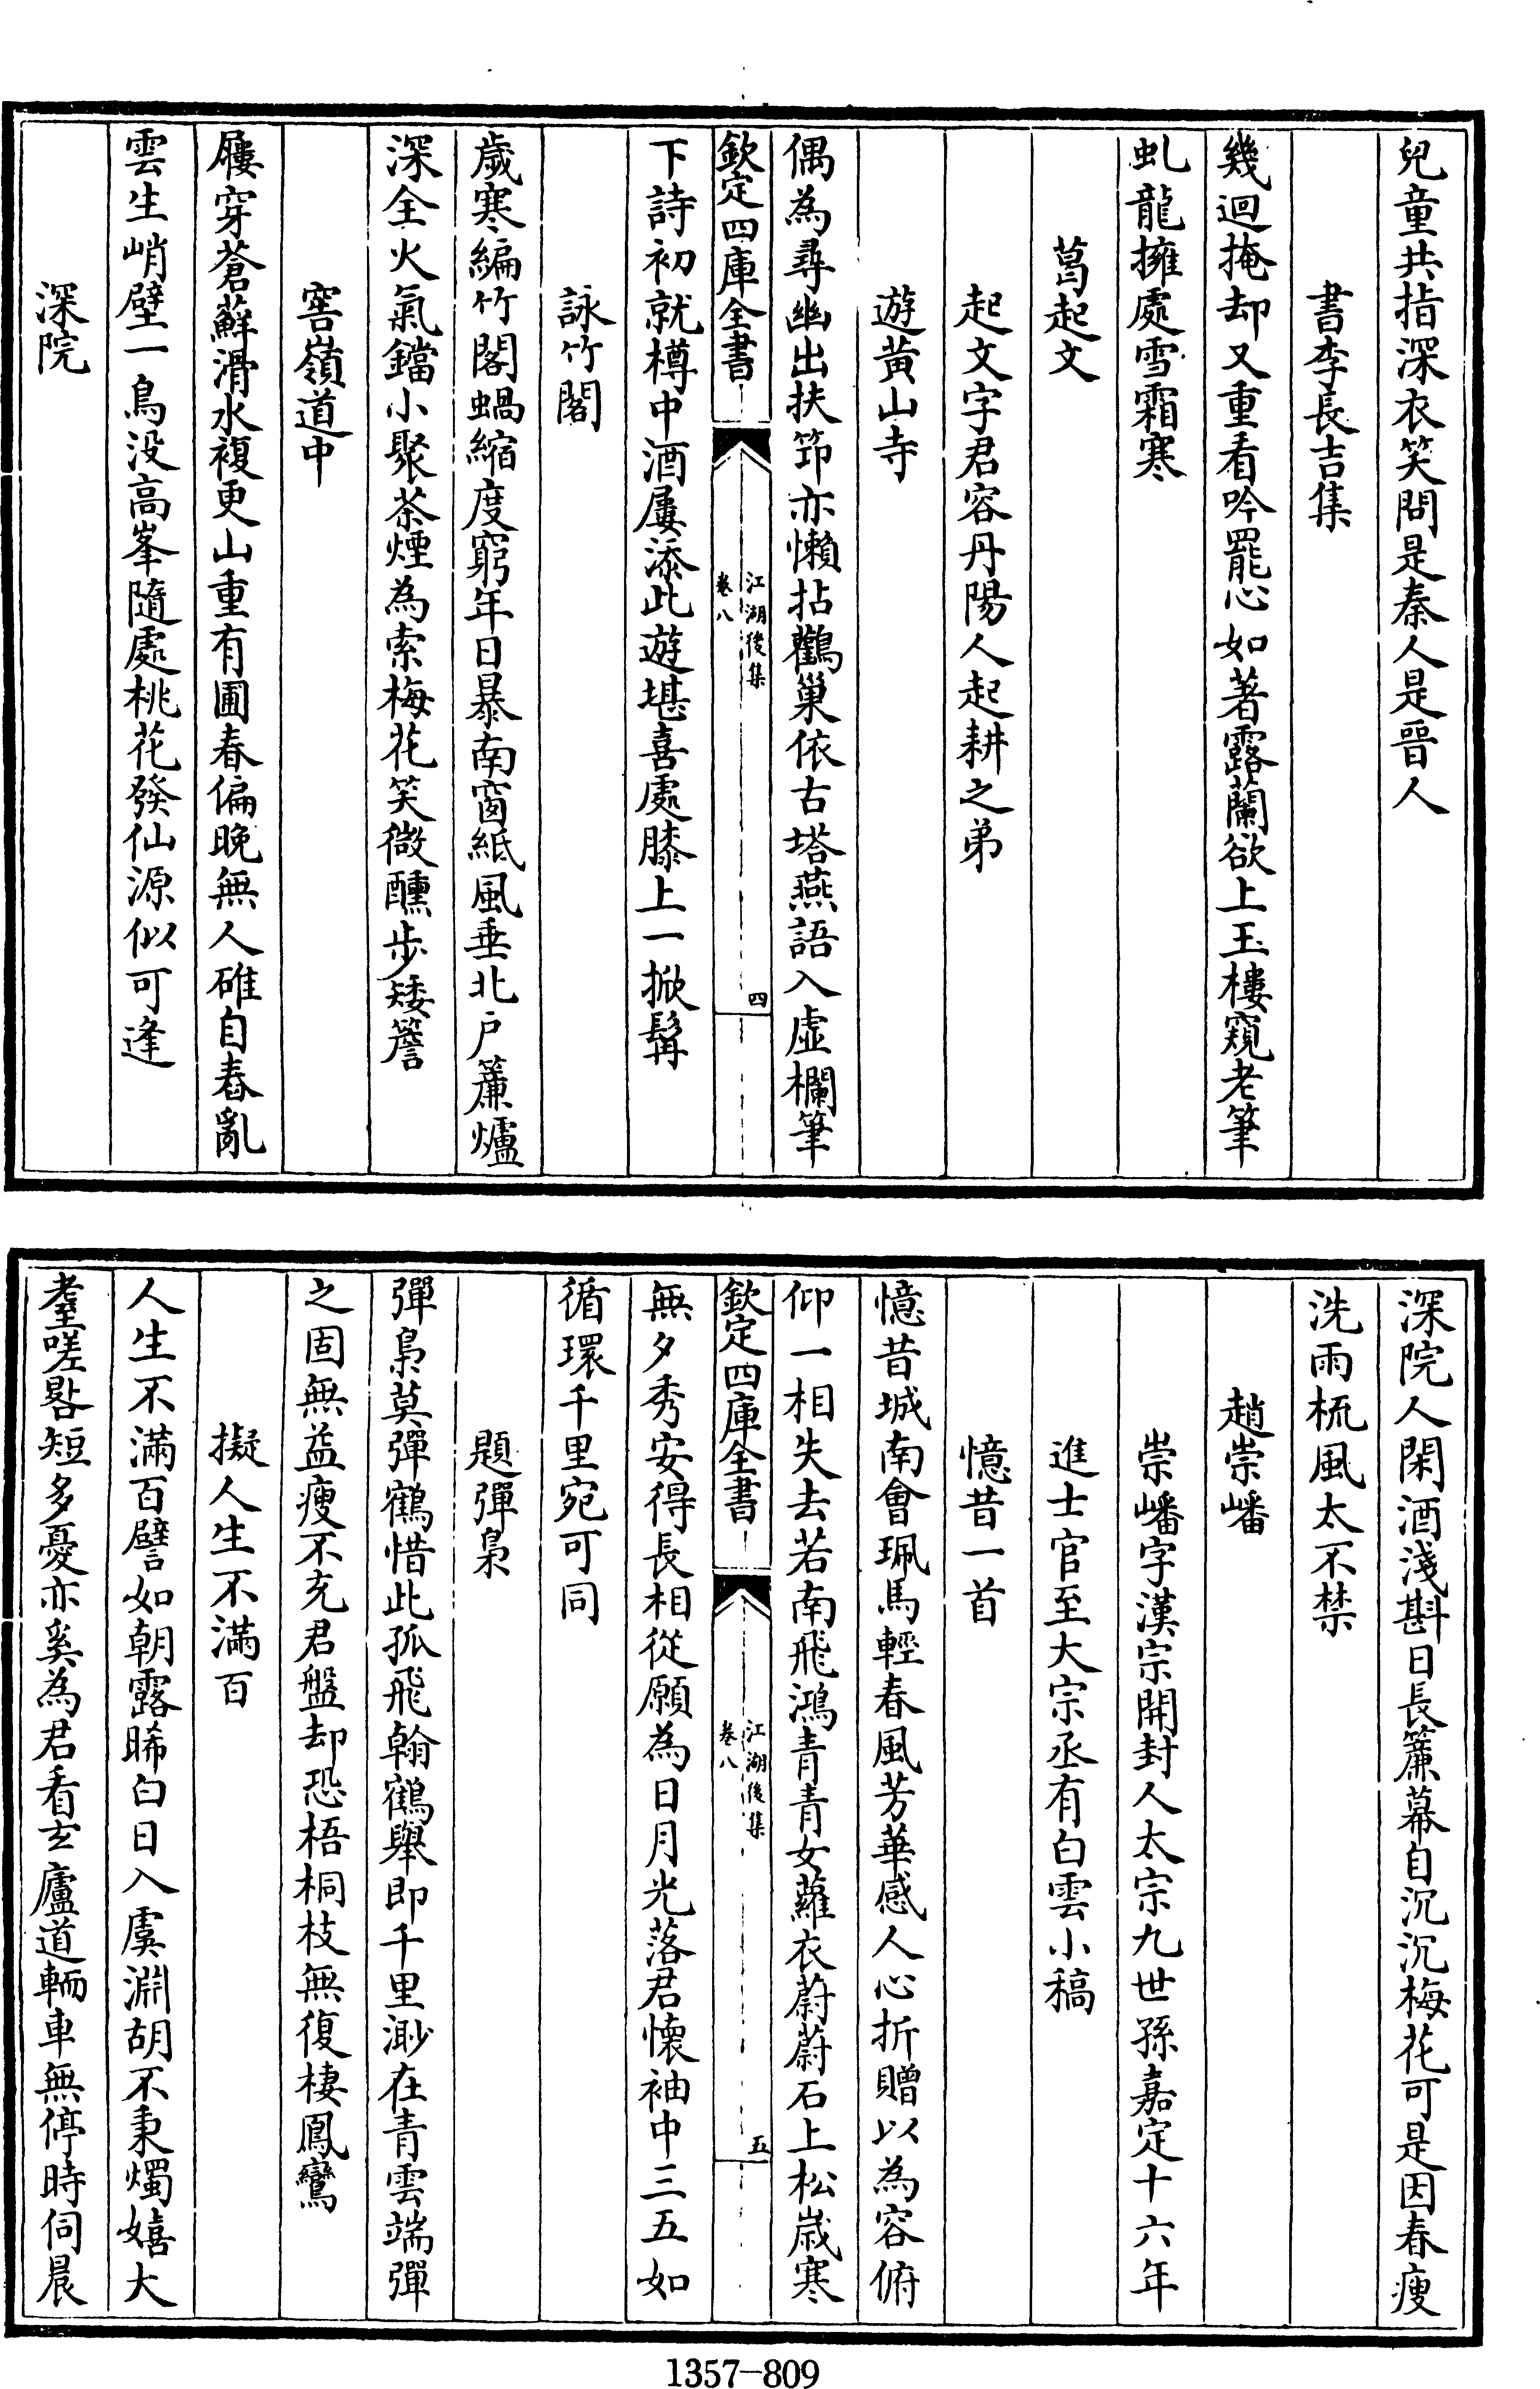 兒童共指深衣笑問是秦人是晉人
書李長吉集
幾迴掩却又重看吟罷心如著露蘭欲上玉樓窺老筆
虬龍擁處雪霜寒
葛起文
起文字君容丹陽人起耕之弟
遊黃山寺
偶為尋幽出扶笻亦懶拈鸛巢依古塔燕語入虛欄筆
欽定四庫全書
江湖後集
卷八
四
下詩初就樽中酒屢添此遊堪喜處膝上一掀髯
詠竹閣
歲寒編竹閣蝸縮度窮年日暴南窗紙風垂北戶簾爐
深全火氣鐺小聚茶煙為索梅花笑微醺步矮簷
窖嶺道中
屨穿蒼蘚滑水複更山重有圃春偏晚無人碓自舂亂
雲生峭壁一鳥没高峯隨處桃花發仙源似可逢
深院
深院人閑酒淺斟日長簾幕自沉沉梅花可是因春瘦
洗雨梳風太不禁
趙崇嶓
崇嶓字漢宗開封人太宗九世孫嘉定十六年
進士官至大宗丞有白雲小稿
憶昔一首
憶昔城南會珮馬輕春風芳華感人心折贈以為容俯
仰一相失去若南飛鴻青青女蘿衣蔚蔚石上松嵗寒
欽定四庫全書
江湖後集
卷八
五
無夕秀安得長相從願為日月光落君懷袖中三五如
循環千里宛可同
題彈梟
彈梟莫彈鶴惜此孤飛翰鶴舉即千里渺在青雲端彈
之固無益瘦不充君盤却恐梧桐枝無復棲鳳鸞
擬人生不滿百
人生不滿百譬如朝露晞白日入虞淵胡不秉燭嬉大
耋嗟晷短多憂亦奚為君看玄廬道輀車無停時伺晨
1357-809